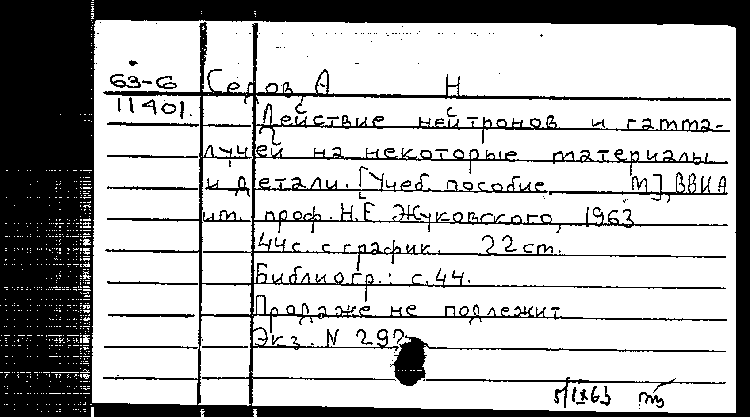 63-6 Серов, А Н
11401.
Действие нейтронов и гамма-
лучей на некоторые материалы
и детали. [Учеб. пособие М], ВВИА
им. проф. Н.Е Жуковского, 1963
44с. с график. 22 см.
Библиогр.: с.44.
Продаже не подлежит
Экз. N 292
5/IX63